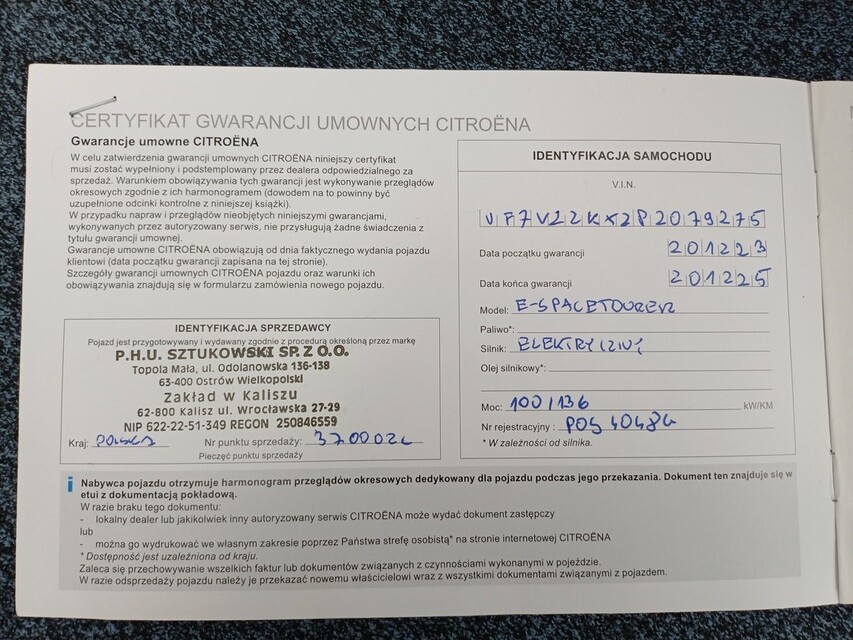 CERTYFIKAT GWARANCJI UMOWNYCH CITROËNA
Gwarancje umowne CITROËNA
W celu zatwierdzenia gwarancji umownych CITROËNA niniejszy certyfikat
musi zostać wypełniony i podstemplowany przez dealera odpowiedzialnego za
sprzedaż. Warunkiem obowiązywania tych gwarancji jest wykonywanie przeglądów
okresowych zgodnie z ich harmonogramem (dowodem na to powinny być
uzupełnione odcinki kontrolne z niniejszej książki).
W przypadku napraw i przeglądów nieobjętych niniejszymi gwarancjami,
wykonywanych przez autoryzowany serwis, nie przysługują żadne świadczenia z
tytułu gwarancji umownej.
Gwarancje umowne CITROËNA obowiązują od dnia faktycznego wydania pojazdu
klientowi (data początku gwarancji zapisana na tej stronie).
Szczegóły gwarancji umownych CITROËNA pojazdu oraz warunki ich
obowiązywania znajdują się w formularzu zamówienia nowego pojazdu.
IDENTYFIKACJA SPRZEDAWCY
Pojazd jest przygotowywany i wydawany zgodnie z procedurą określoną przez markę
P.H.U. SZTUKOWSKI SP. Z O.O.
Topola Mała, ul. Odolanowska 136-138
63-400 Ostrów Wielkopolski
Zakład w Kaliszu
62-800 Kalisz ul. Wrocławska 27-29
NIP 622-22-51-349 REGON 250846559
Kraj: POLSKA Nr punktu sprzedaży:
Pieczęć punktu sprzedaży
IDENTYFIKACJA SAMOCHODU
V.I.N.
VF7V22KXZP2079275
Data początku gwarancji 201223
Data końca gwarancji 201225
Model: E-SPACETOURER
Paliwo*:
Silnik: ELEKTRYCZNY
Olej silnikowy*:
Moc: 100/136 kW/KM
Nr rejestracyjny: PO5 4048G
* W zależności od silnika.
i Nabywca pojazdu otrzymuje harmonogram przeglądów okresowych dedykowany dla pojazdu podczas jego przekazania. Dokument ten znajduje się w
etui z dokumentacją pokładową.
W razie braku tego dokumentu:
- lokalny dealer lub jakikolwiek inny autoryzowany serwis CITROËNA może wydać dokument zastępczy
lub
- można go wydrukować we własnym zakresie poprzez Państwa strefę osobistą* na stronie internetowej CITROËNA
* Dostępność jest uzależniona od kraju.
Zaleca się przechowywanie wszelkich faktur lub dokumentów związanych z czynnościami wykonanymi w pojeździe.
W razie odsprzedaży pojazdu należy je przekazać nowemu właścicielowi wraz z wszystkimi dokumentami związanymi z pojazdem.